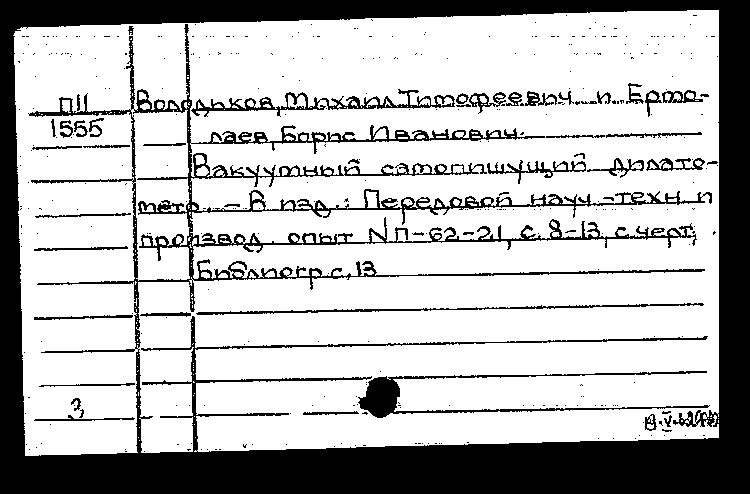 П11
1555
Володьков, Михаил Тимофеевич и Ермо-
лаев, Борис Иванович.
Вакуумный самопишущий дилато-
метр. – В изд.: Передовой науч.-техн. и
производ. опыт N П-62-21, с. 8-13, с черт.
Библиогр с. 13
3